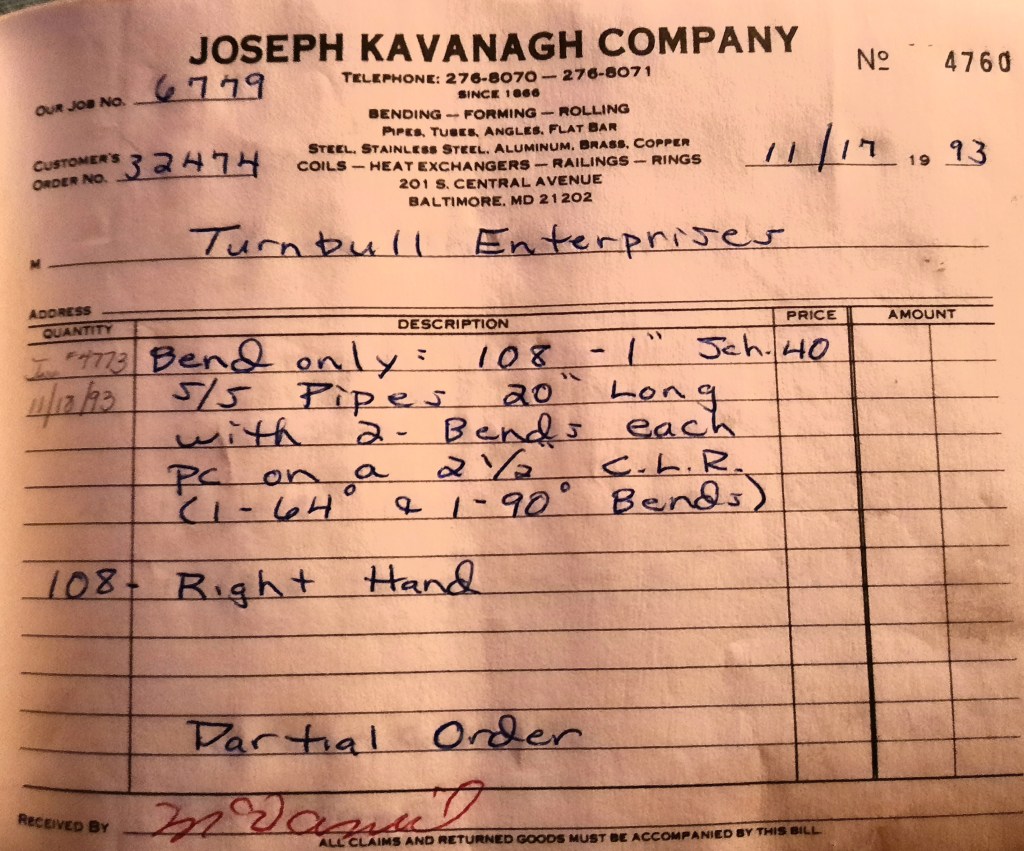 JOSEPH KAVANAGH COMPANY
Nº 4760
TELEPHONE: 276-8070 — 276-8071
SINCE 1866
OUR JOB NO. 6779
BENDING — FORMING — ROLLING
PIPES, TUBES, ANGLES, FLAT BAR
STEEL, STAINLESS STEEL, ALUMINUM, BRASS, COPPER
COILS — HEAT EXCHANGERS — RAILINGS — RINGS
CUSTOMER'S ORDER NO. 32474
11/17 19 93
201 S. CENTRAL AVENUE
BALTIMORE, MD 21202
M Turnbull Enterprises
ADDRESS
QUANTITY DESCRIPTION PRICE AMOUNT
#4773 Bend only: 108 - 1" Sch. 40
11/18/93 S/S Pipes 20" Long
with 2- Bends each
pc on a 2 1/2" C.L.R.
(1-64° & 1-90° Bends)
108- Right Hand
Partial Order
RECEIVED BY
ALL CLAIMS AND RETURNED GOODS MUST BE ACCOMPANIED BY THIS BILL